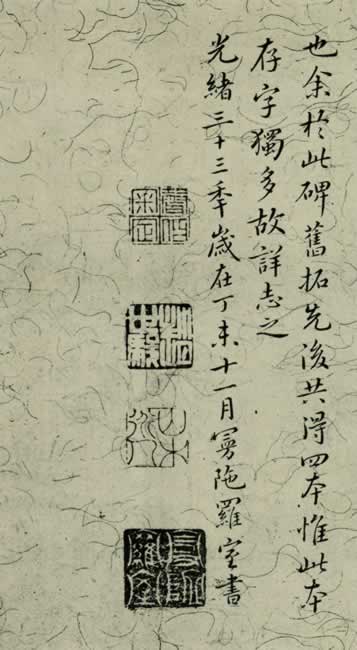 也余於此碑舊拓先後共得四本惟此本
存字獨多故詳志之
光緒三十三年歲在丁未十一月㝱陁羅室書